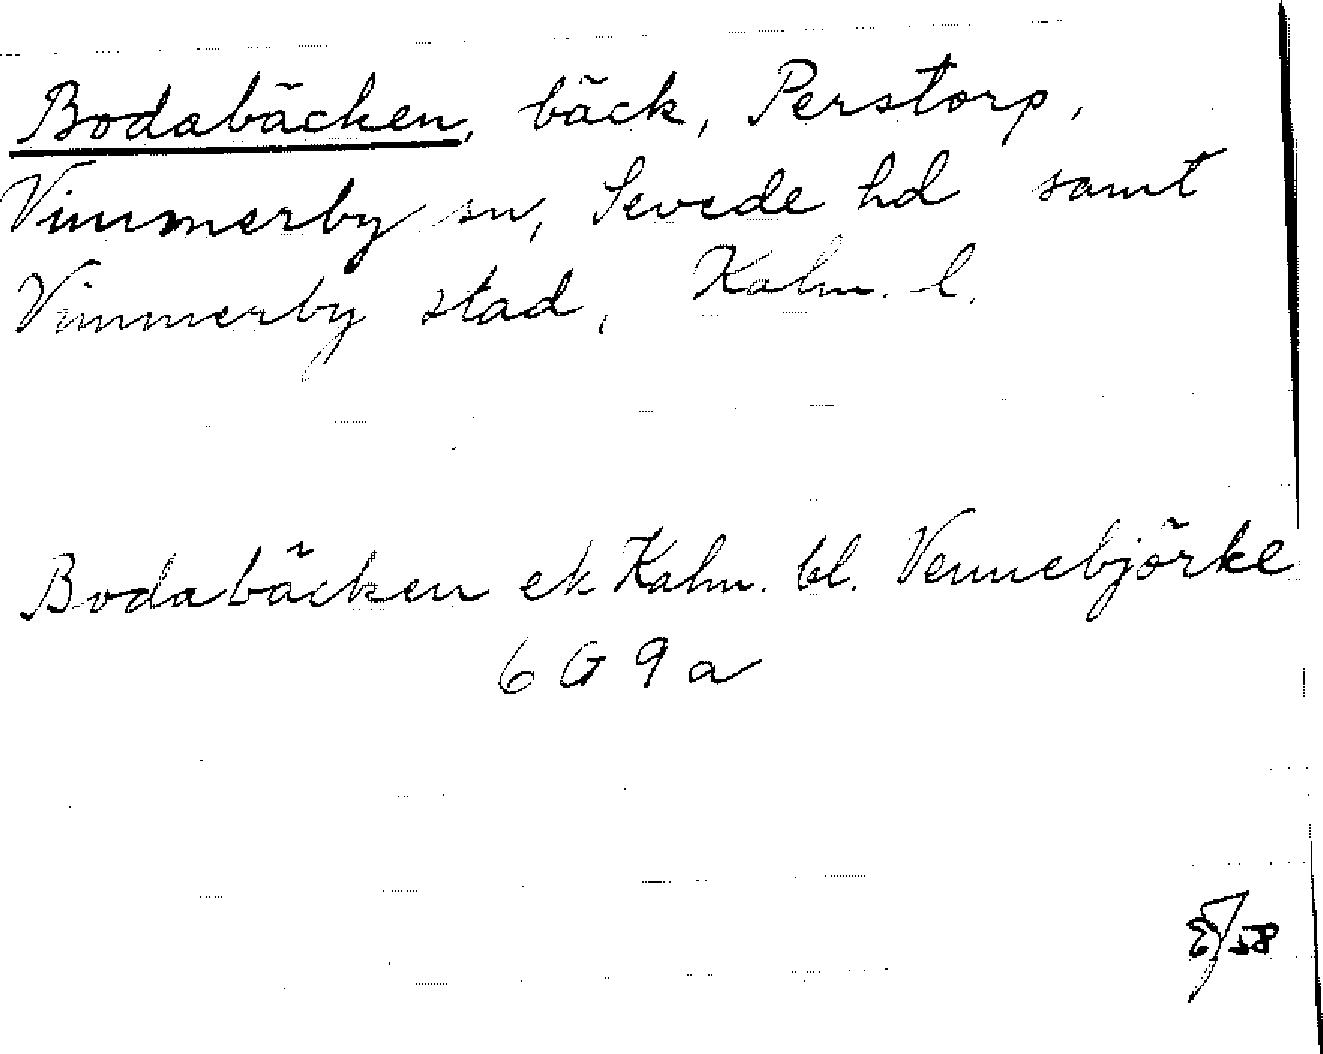 Bodabäcken, bäck, Perstorp,
Vimmerby sn, Sevede hd samt
Vimmerby stad, Kalm. l.
Bodabäcken ek Kalm. bl. Vennebjörke
6 G 9 a